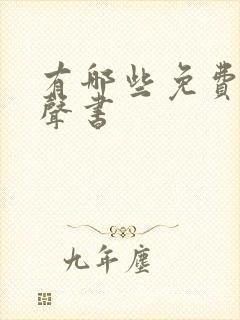 有哪些免費
聲書
九年塵